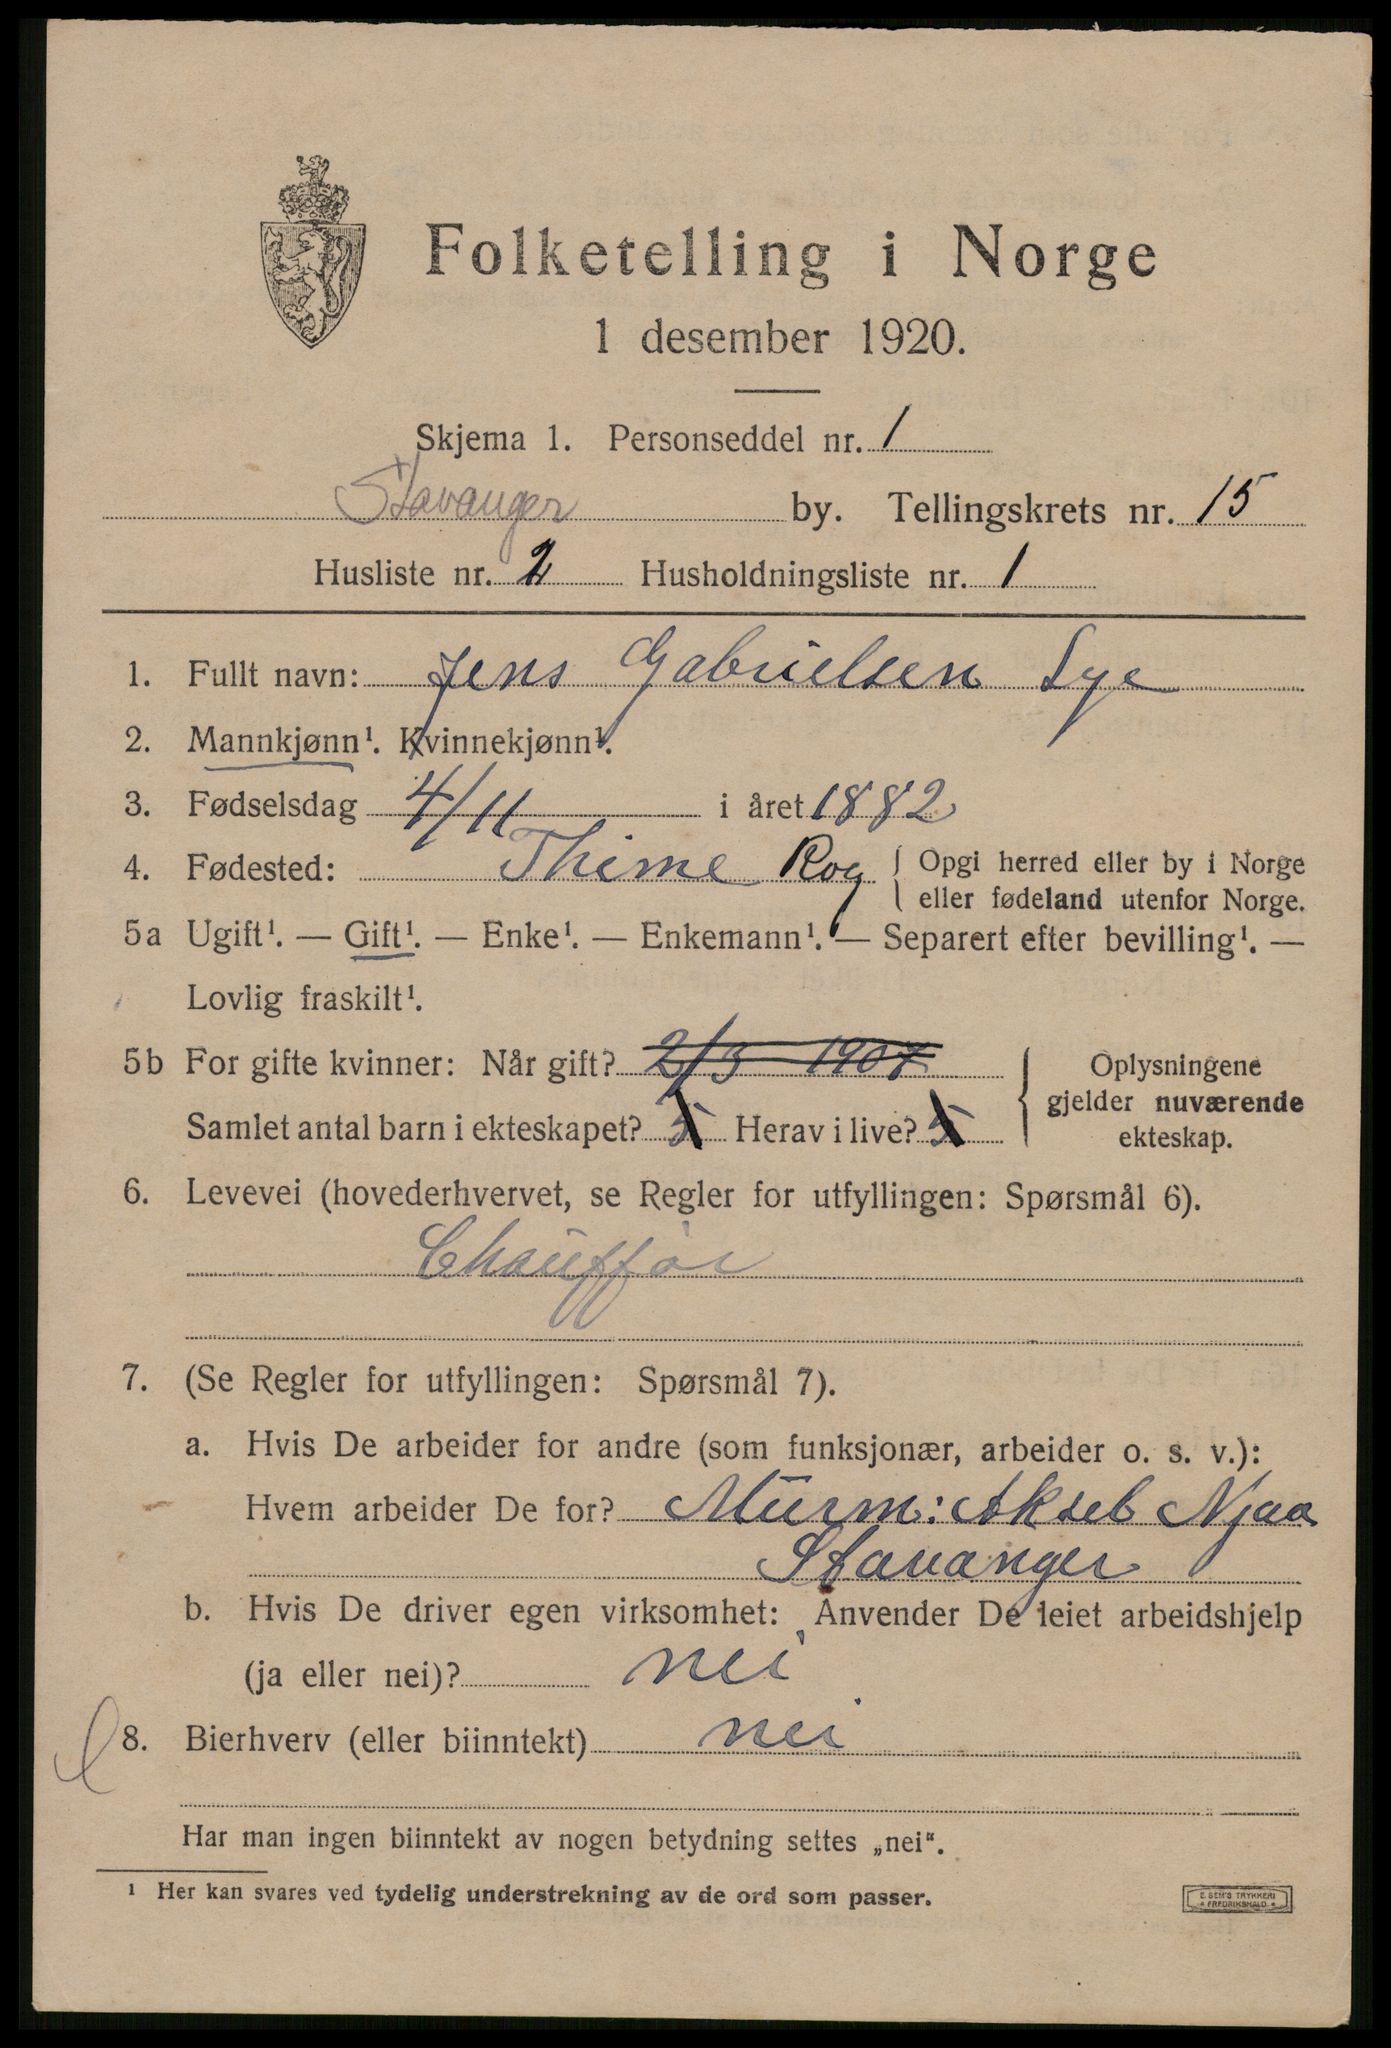 Folketelling i Norge
1 desember 1920.
Skjema 1. Personseddel nr. 1
Stavanger by. Tellingskrets nr. 15
Husliste nr. 2 Husholdningsliste nr. 1
1. Fullt navn: Jens Gabrielsen Lye
2. Mannkjønn¹. Kvinnekjønn¹.
3. Fødselsdag 4/11 i året 1882
4. Fødested: Thime Rog { Opgi herred eller by i Norge
eller fødeland utenfor Norge.
5a Ugift¹. — Gift¹. — Enke¹. — Enkemann¹. — Separert efter bevilling¹. —
Lovlig fraskilt¹.
5b For gifte kvinner: Når gift? 2/3 1907 { Oplysningene
gjelder nuværende
ekteskap.
Samlet antal barn i ekteskapet? 5 Herav i live? 5
6. Levevei (hovederhvervet, se Regler for utfyllingen: Spørsmål 6).
Chauffør
7. (Se Regler for utfyllingen: Spørsmål 7).
a. Hvis De arbeider for andre (som funksjonær, arbeider o. s. v.):
Hvem arbeider De for? Murm: Aksel Njaa
Stavanger
b. Hvis De driver egen virksomhet: Anvender De leiet arbeidshjelp
(ja eller nei)? nei
8. Bierhverv (eller biinntekt) nei
Har man ingen biinntekt av nogen betydning settes „nei“.
¹ Her kan svares ved tydelig understrekning av de ord som passer.
E. SEM'S TRYKKERI
FREDRIKSHALD